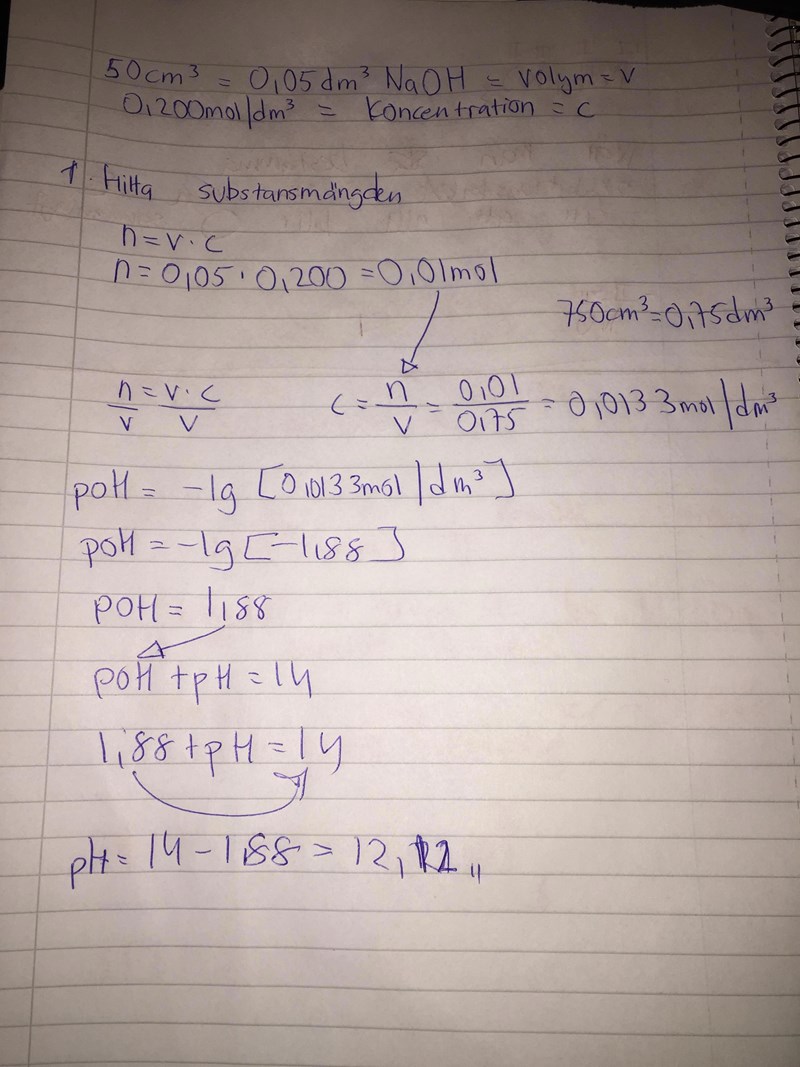 50cm³ = 0,05dm³ NaOH = volym = v
0,200mol/dm³ = Koncentration = c
1. Hitta substansmängden
n = v · c
n = 0,05 · 0,200 = 0,01mol
750cm³ = 0,75dm³
n/v = v · c/v    c = n/v = 0,01/0,75 = 0,0133mol/dm³
pOH = -lg [0,0133mol/dm³]
pOH = -lg [-1,88]
pOH = 1,88
pOH + pH = 14
1,88 + pH = 14
pH = 14 - 1,88 = 12,12 "